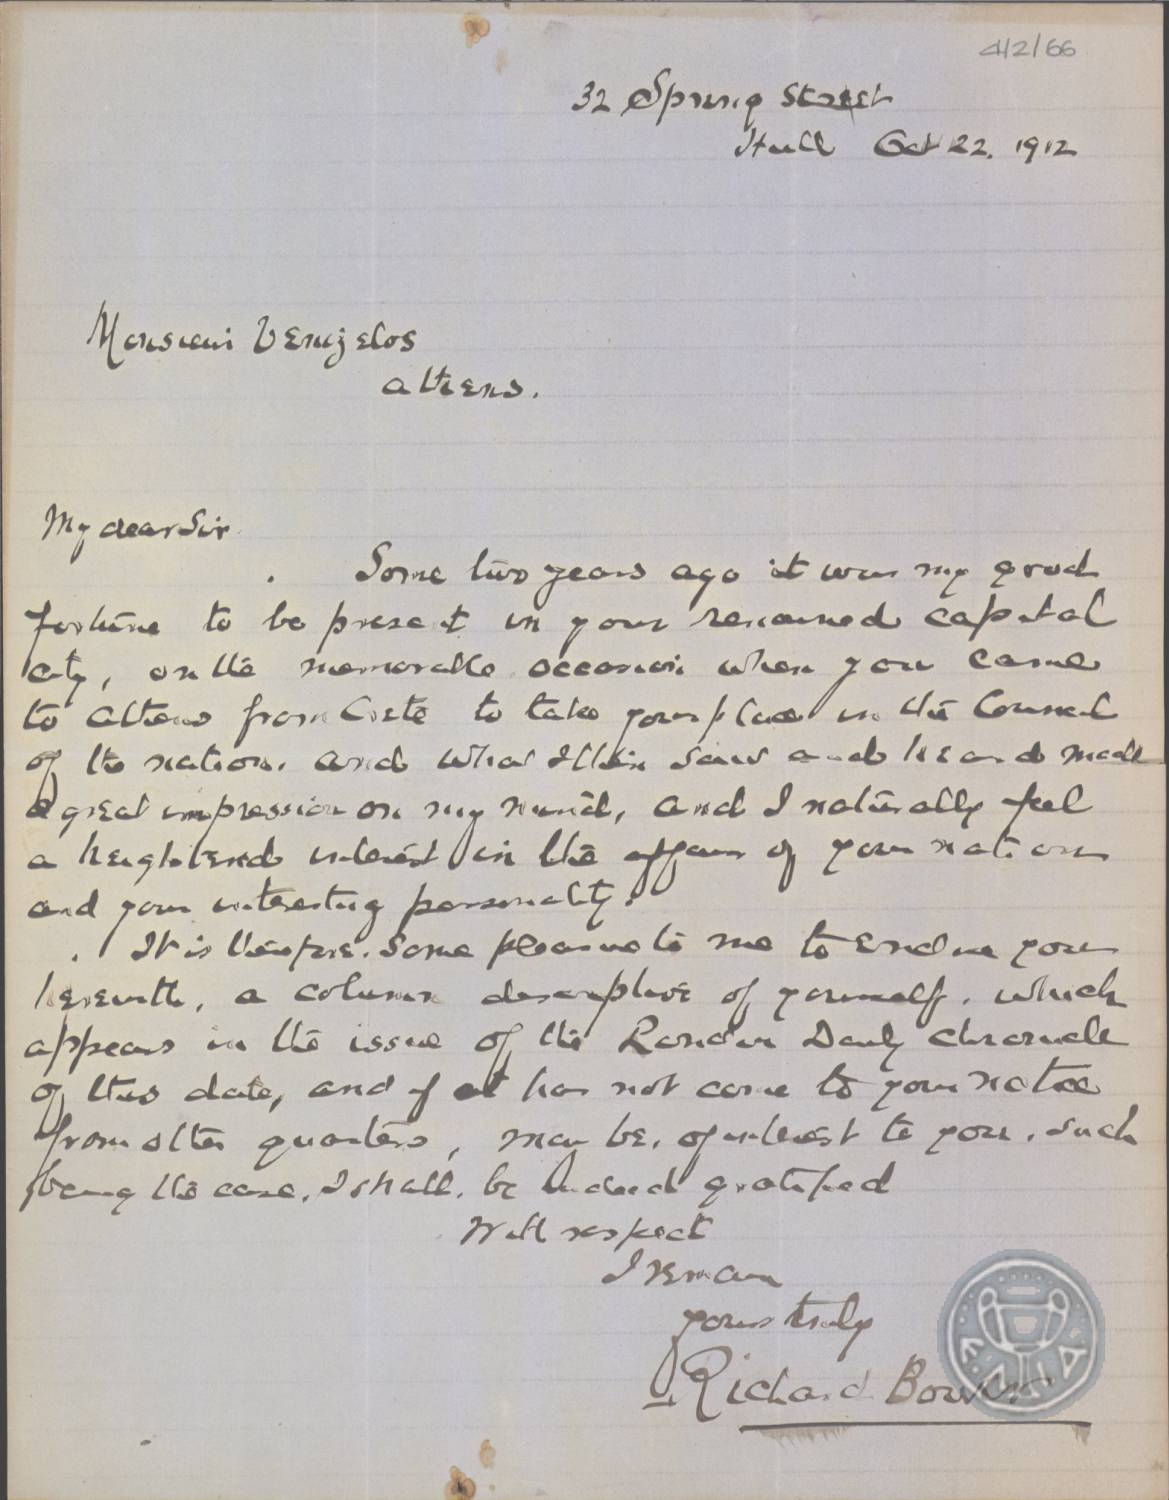 412/66
32 Spring Street
Hull Oct 22. 1912
Monsieur Venizelos
Athens.
My dear Sir
Some two years ago it was my good
fortune to be present in your renowned capital
city, on the memorable occasion when you came
to Athens from Crete to take your place in the Council
of the nation. and what I then saw and heard made
a great impression on my mind, and I naturally feel
a heightend interest in the affairs of your nation
and your interesting personality.
It is therefore. some pleasure to me to enclose you
herewith, a column descriptive of yourself. which
appears in the issue of the London Daily Chronicle
of this date, and if it has not come to your notice
from other quarters, may be, of interest to you. such
being the case, I shall. be indeed gratified
With respect
I remain
yours truly
Richard